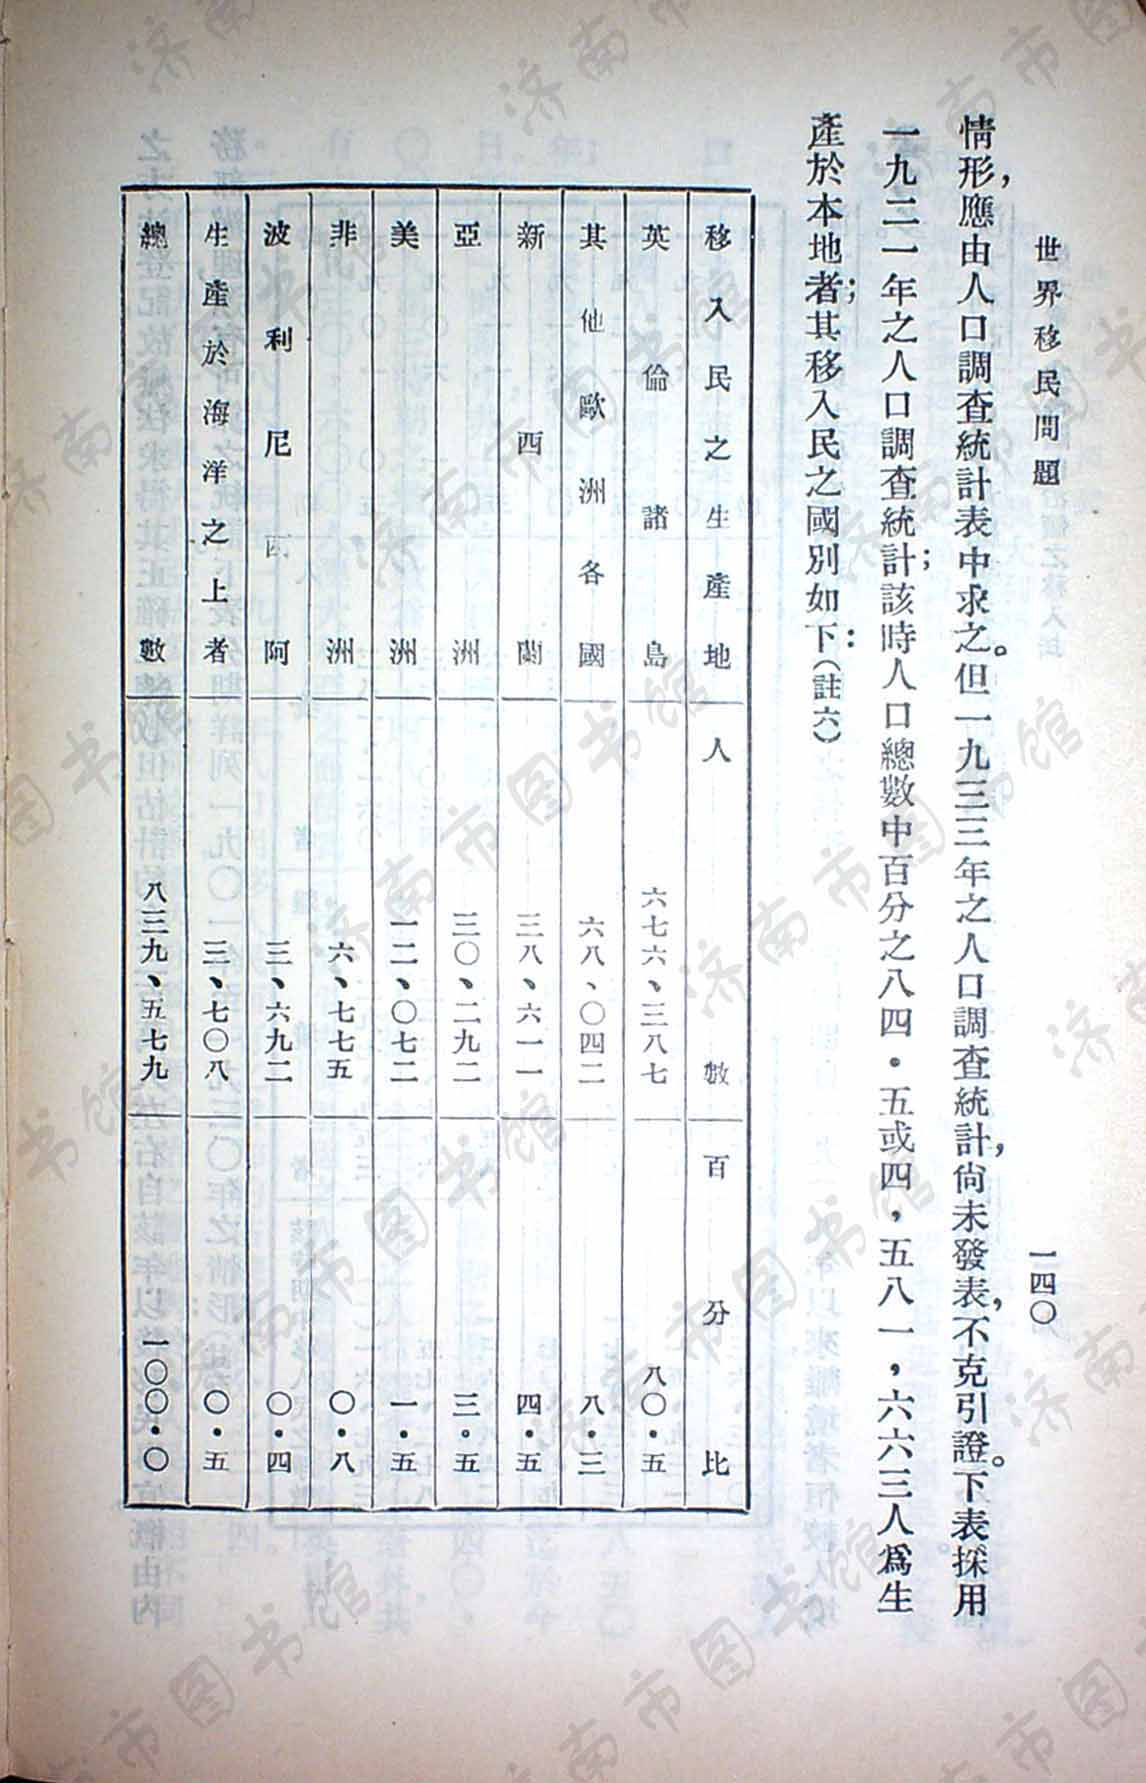 世界移民問題
一四〇
情形，應由人口調查統計表中求之。但一九三三年之人口調查統計，尙未發表，不克引證。下表採用
一九二一年之人口調查統計；該時人口總數中百分之八四·五或四，五八一，六六三人爲生
產於本地者；其移入民之國別如下：（註六）
移入民之生產地 人數 百分比
英倫諸島 六七六、三八七 八〇·五
其他歐洲各國 六八、〇四二 八·三
新西蘭 三八、六一一 四·五
亞洲 三〇、二九二 三。五
美洲 一二、〇七二 一·五
非洲 六、七七五 〇·八
波利尼西阿 三、六九二 〇·四
生產於海洋之上者 三、七〇八 〇·五
總數 八三九、五七九 一〇〇·〇
济南市图书馆